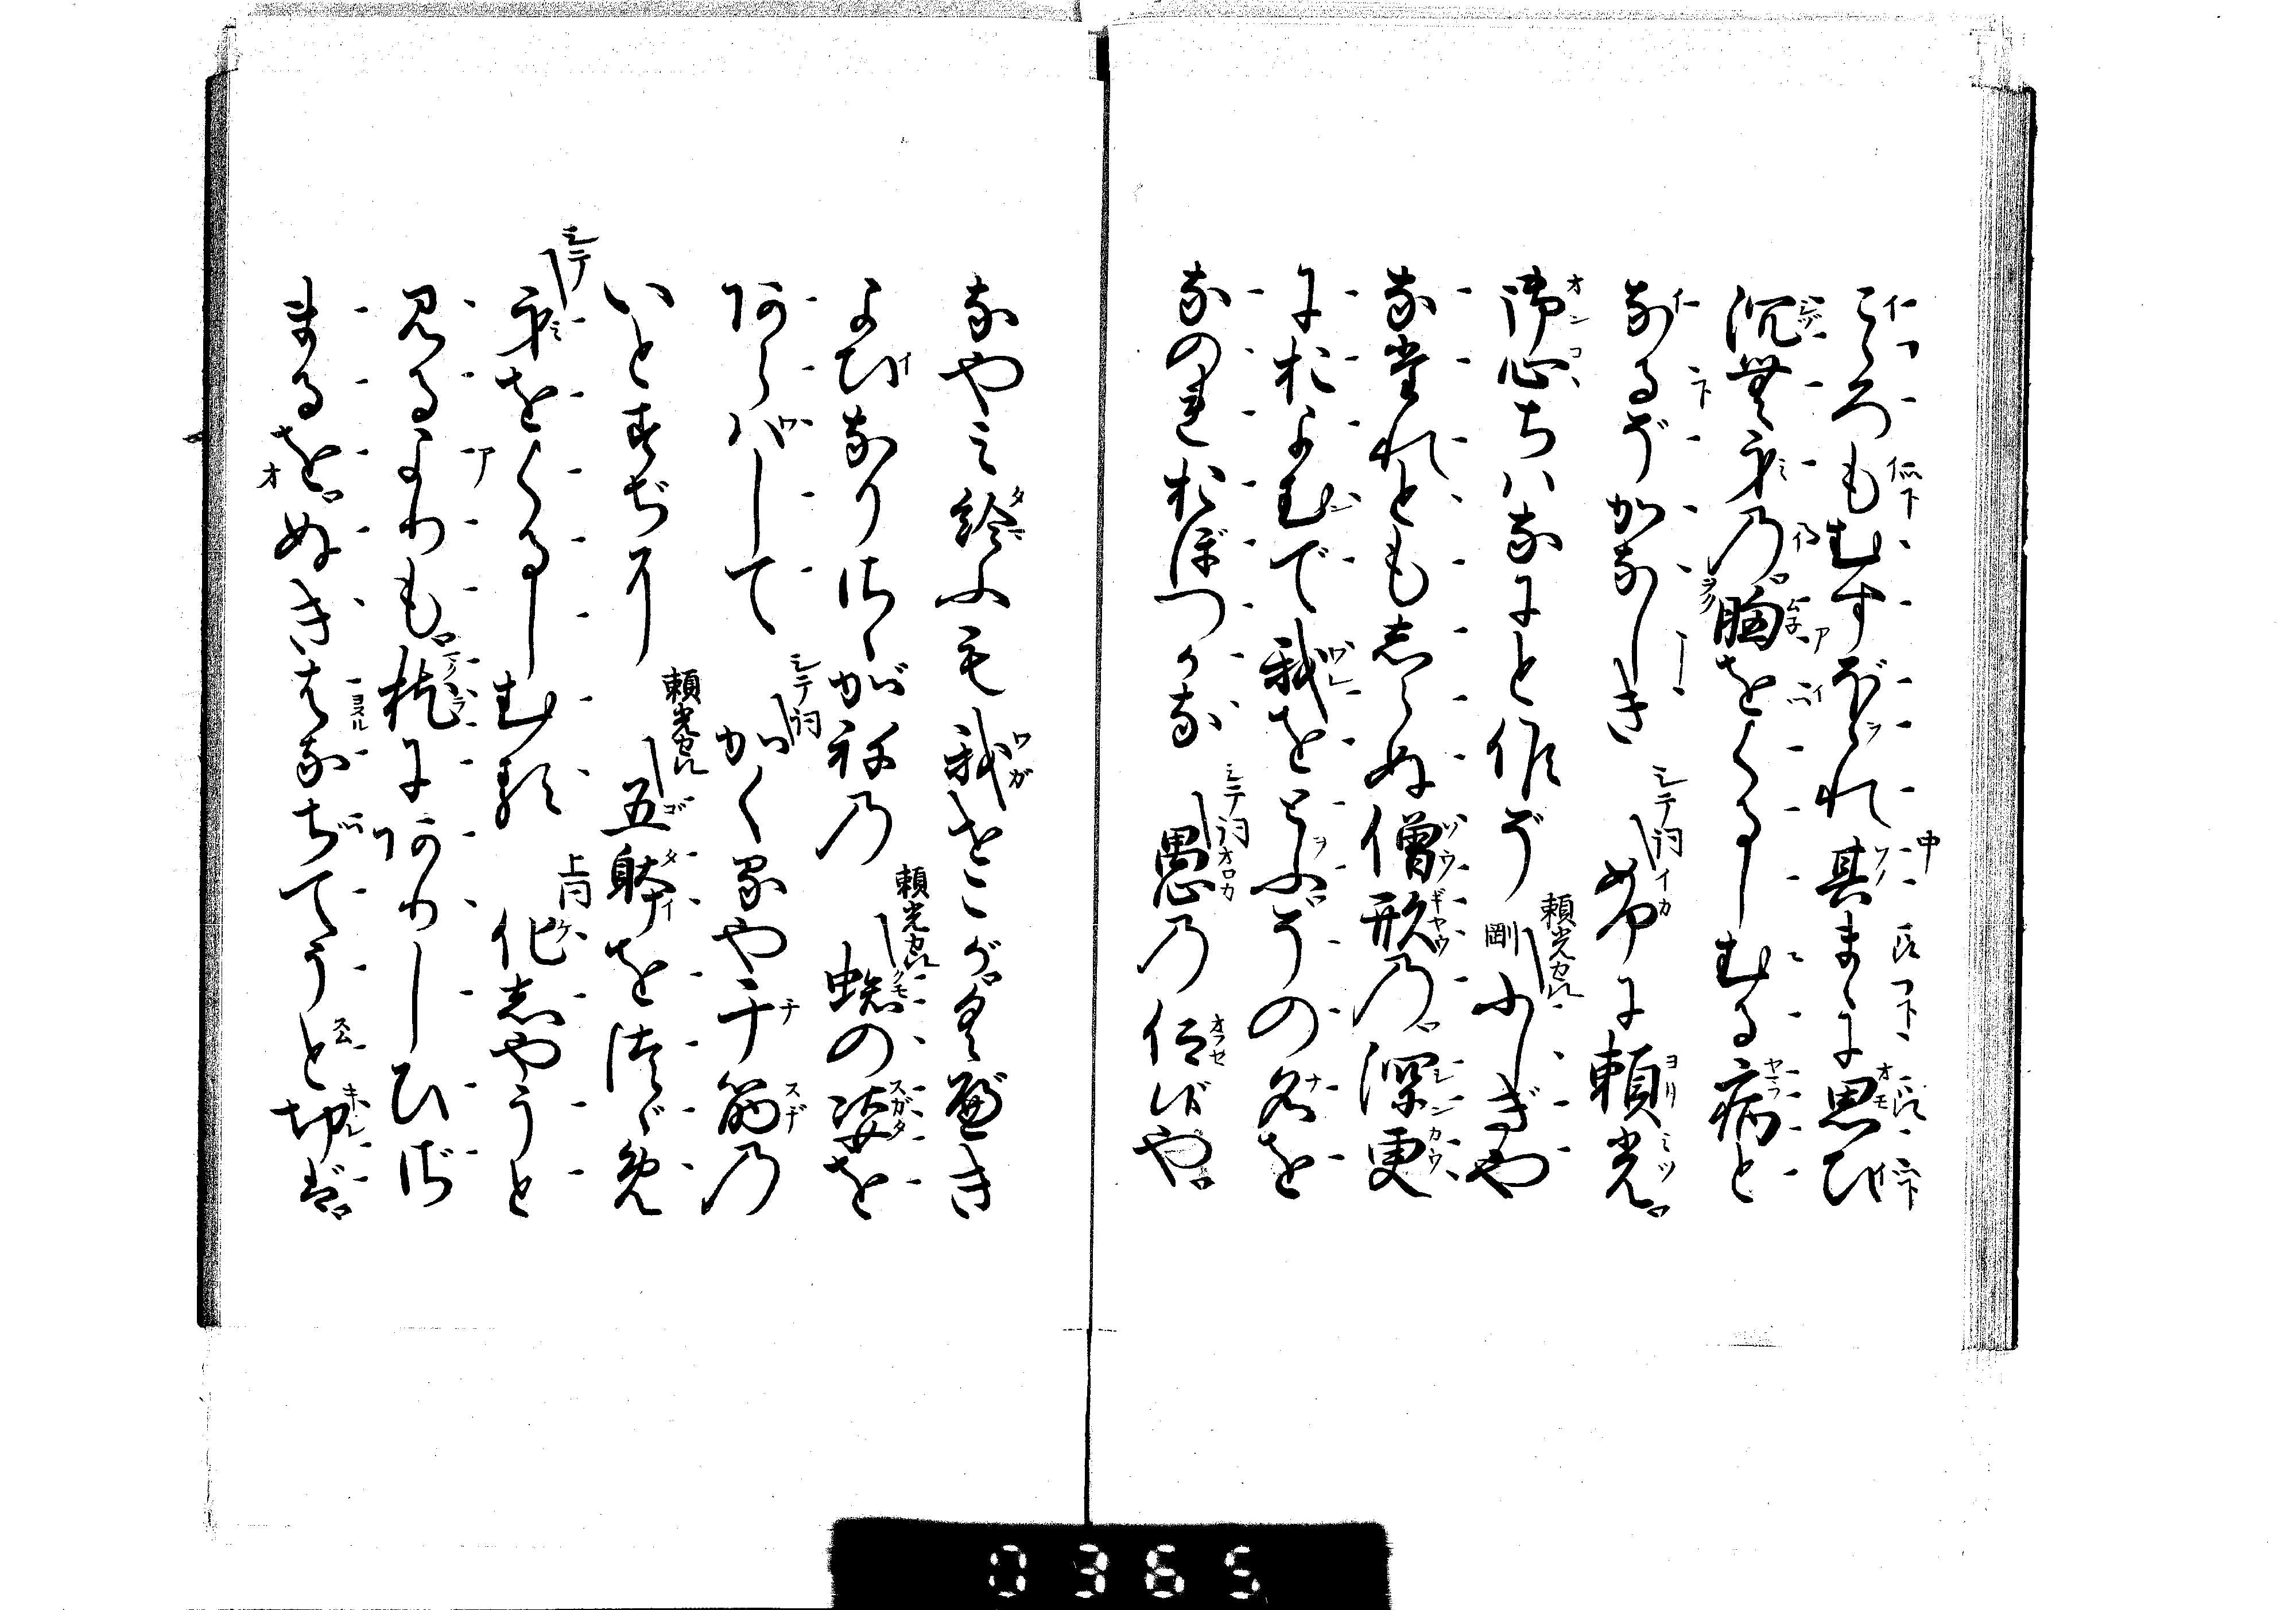 こゝろもむすぼゝれ其まゝに思ひ
沉無身乃胸をくるしむる病と
なるぞかなしき シテ詞 如何に頼光
御心ちハなにと候ぞ 頼光カヽル 剛 ふしぎや
な堂れとも志らぬ僧形乃深更
におよむで我をとふぞの名を
なのれおぼつかな シテ詞 愚乃仰ばや
なやミ給ふも我せこが来べき
よひなりさゝがにの 頼光カヽル 蜘の姿を
あらハして シテ詞 かくるや千筋乃
いとすぢに 頼光カヽル 五躰をつゞめ
シテ 身をくるしむる 上同 化志やうと
見るよりも枕にありしひざ
まるをぬきはなちてうと切ば